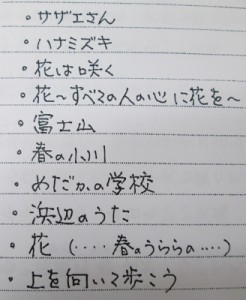 ・サザエさん
・ハナミズキ
・花は咲く
・花～すべての人の心に花を～
・富士山
・春の小川
・めだかの学校
・浜辺のうた
・花 (‥‥春のうららの‥‥)
・上を向いて歩こう